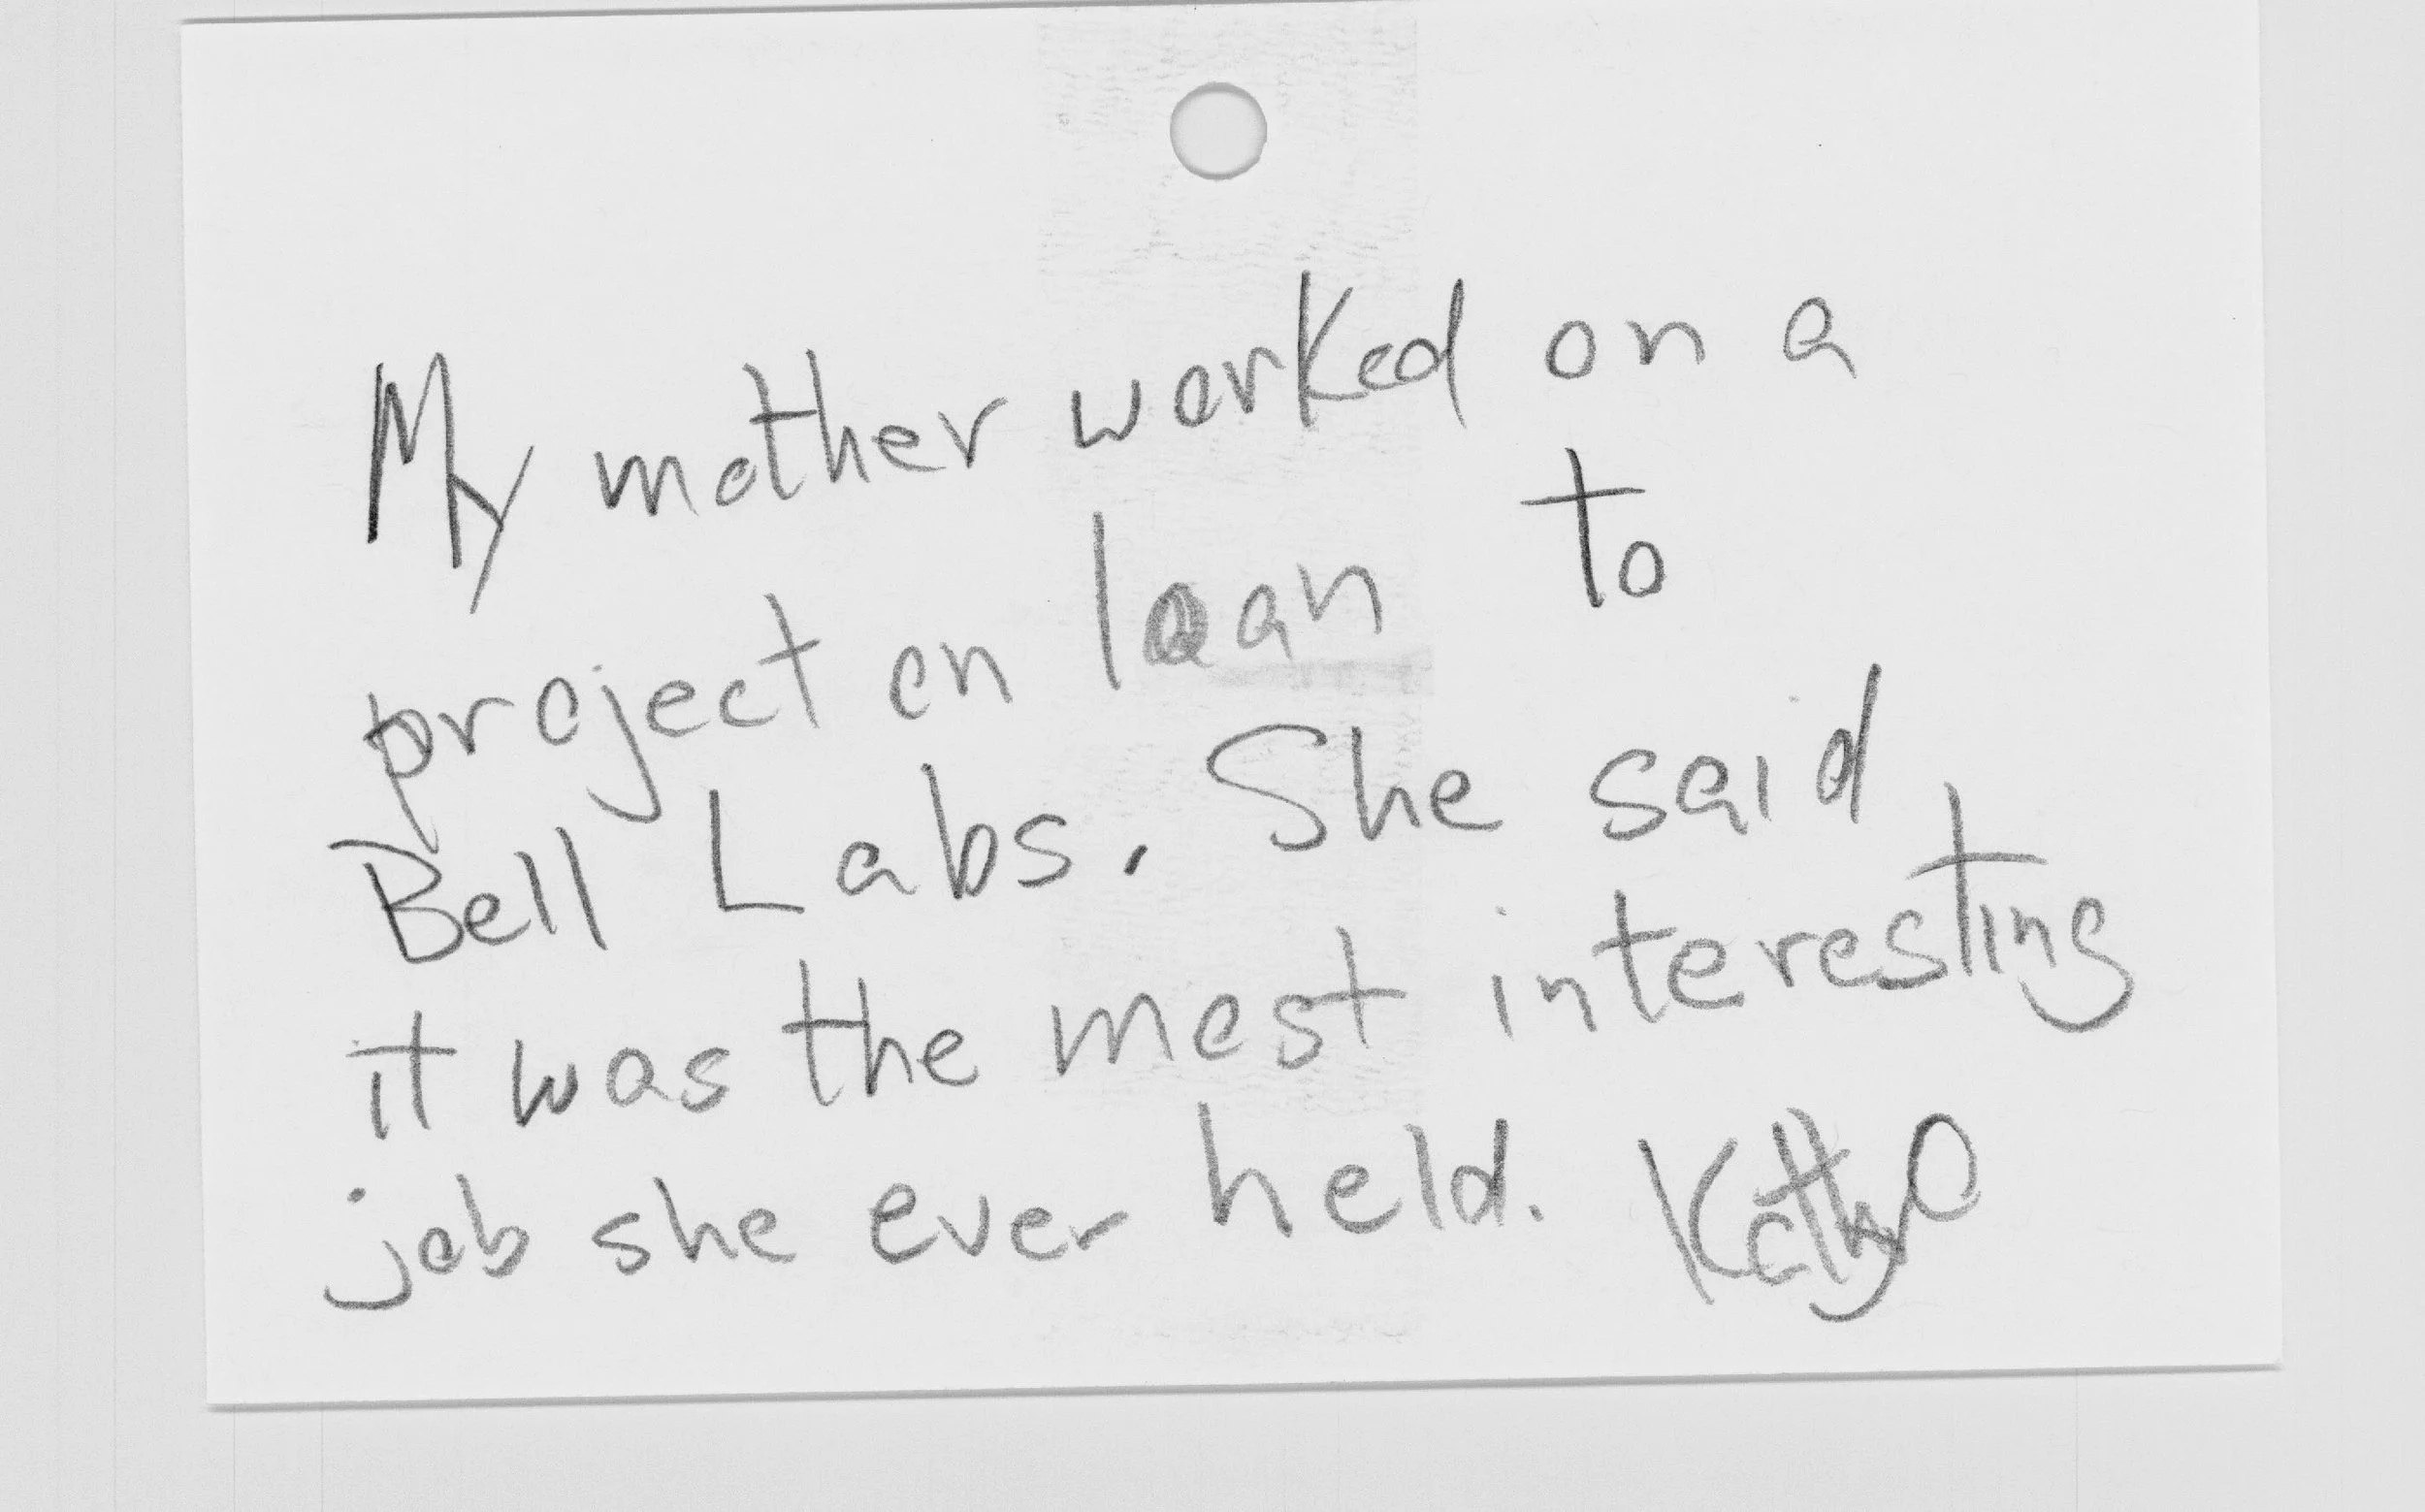 My mother worked on a
project on loan to
Bell Labs. She said
it was the most interesting
job she ever held. Kathy O